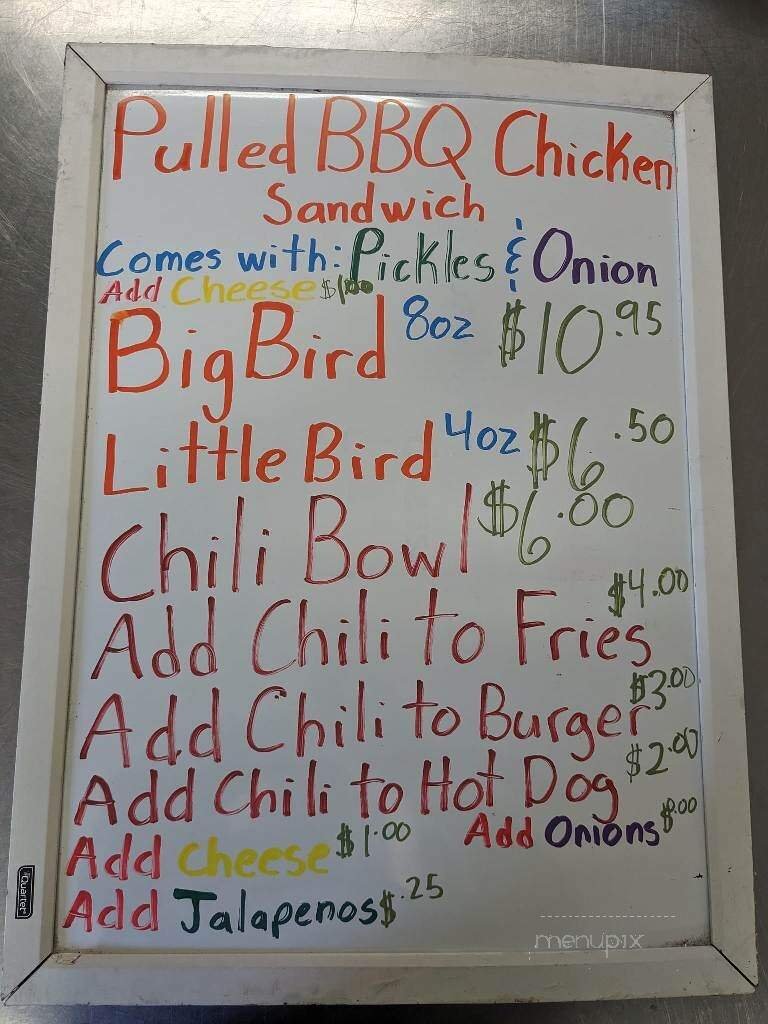 Pulled BBQ Chicken
Sandwich
Comes with: Pickles & Onion
Add Cheese $1.00
Big Bird 8oz $10.95
Little Bird 4oz $6.50
Chili Bowl $6.00
Add Chili to Fries $4.00
Add Chili to Burger $3.00
Add Chili to Hot Dog $2.00
Add Cheese $1.00 Add Onions
Add Jalapenos $.25
Quartet
menupix